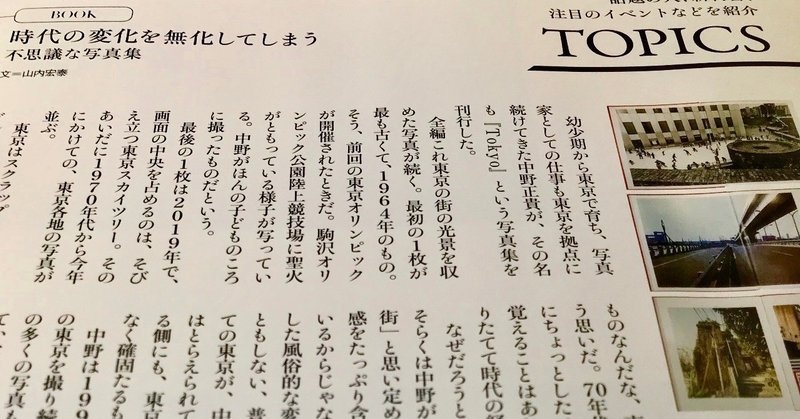 BOOK
時代の変化を無化してしまう
不思議な写真集
文=山内宏泰
注目のイベントなどを紹介
TOPICS
幼少期から東京で育ち、写真
家としての仕事も東京を拠点に
続けてきた中野正貴が、その名
も『Tokyo』という写真集を
刊行した。
全編これ東京の街の光景を収
めた写真が続く。最初の1枚が
最も古くて、1964年のもの。
そう、前回の東京オリンピック
が開催されたときだ。駒沢オリ
ンピック公園陸上競技場に聖火
がともっている様子が写ってい
る。中野がほんの子どものころ
に撮ったものだという。
最後の1枚は2019年で、
画面の中央を占めるのは、そび
え立つ東京スカイツリー。その
あいだに1970年代から今年
にかけての、東京各地の写真が
並ぶ。
東京はスクラップ
ものなんだな、
う思いだ。70年
にちょっとした
覚えることはあ
りたてて時代の
なぜだろうと
そらくは中野が
街」と思い定め
感をたっぷり含
いるからじゃな
した風俗的な変
ともしない、普
ての東京が、中
はとらえられて
る側にも、東京
なく確固たるも
中野は199
の東京を撮り続
の多くの写真も
て、